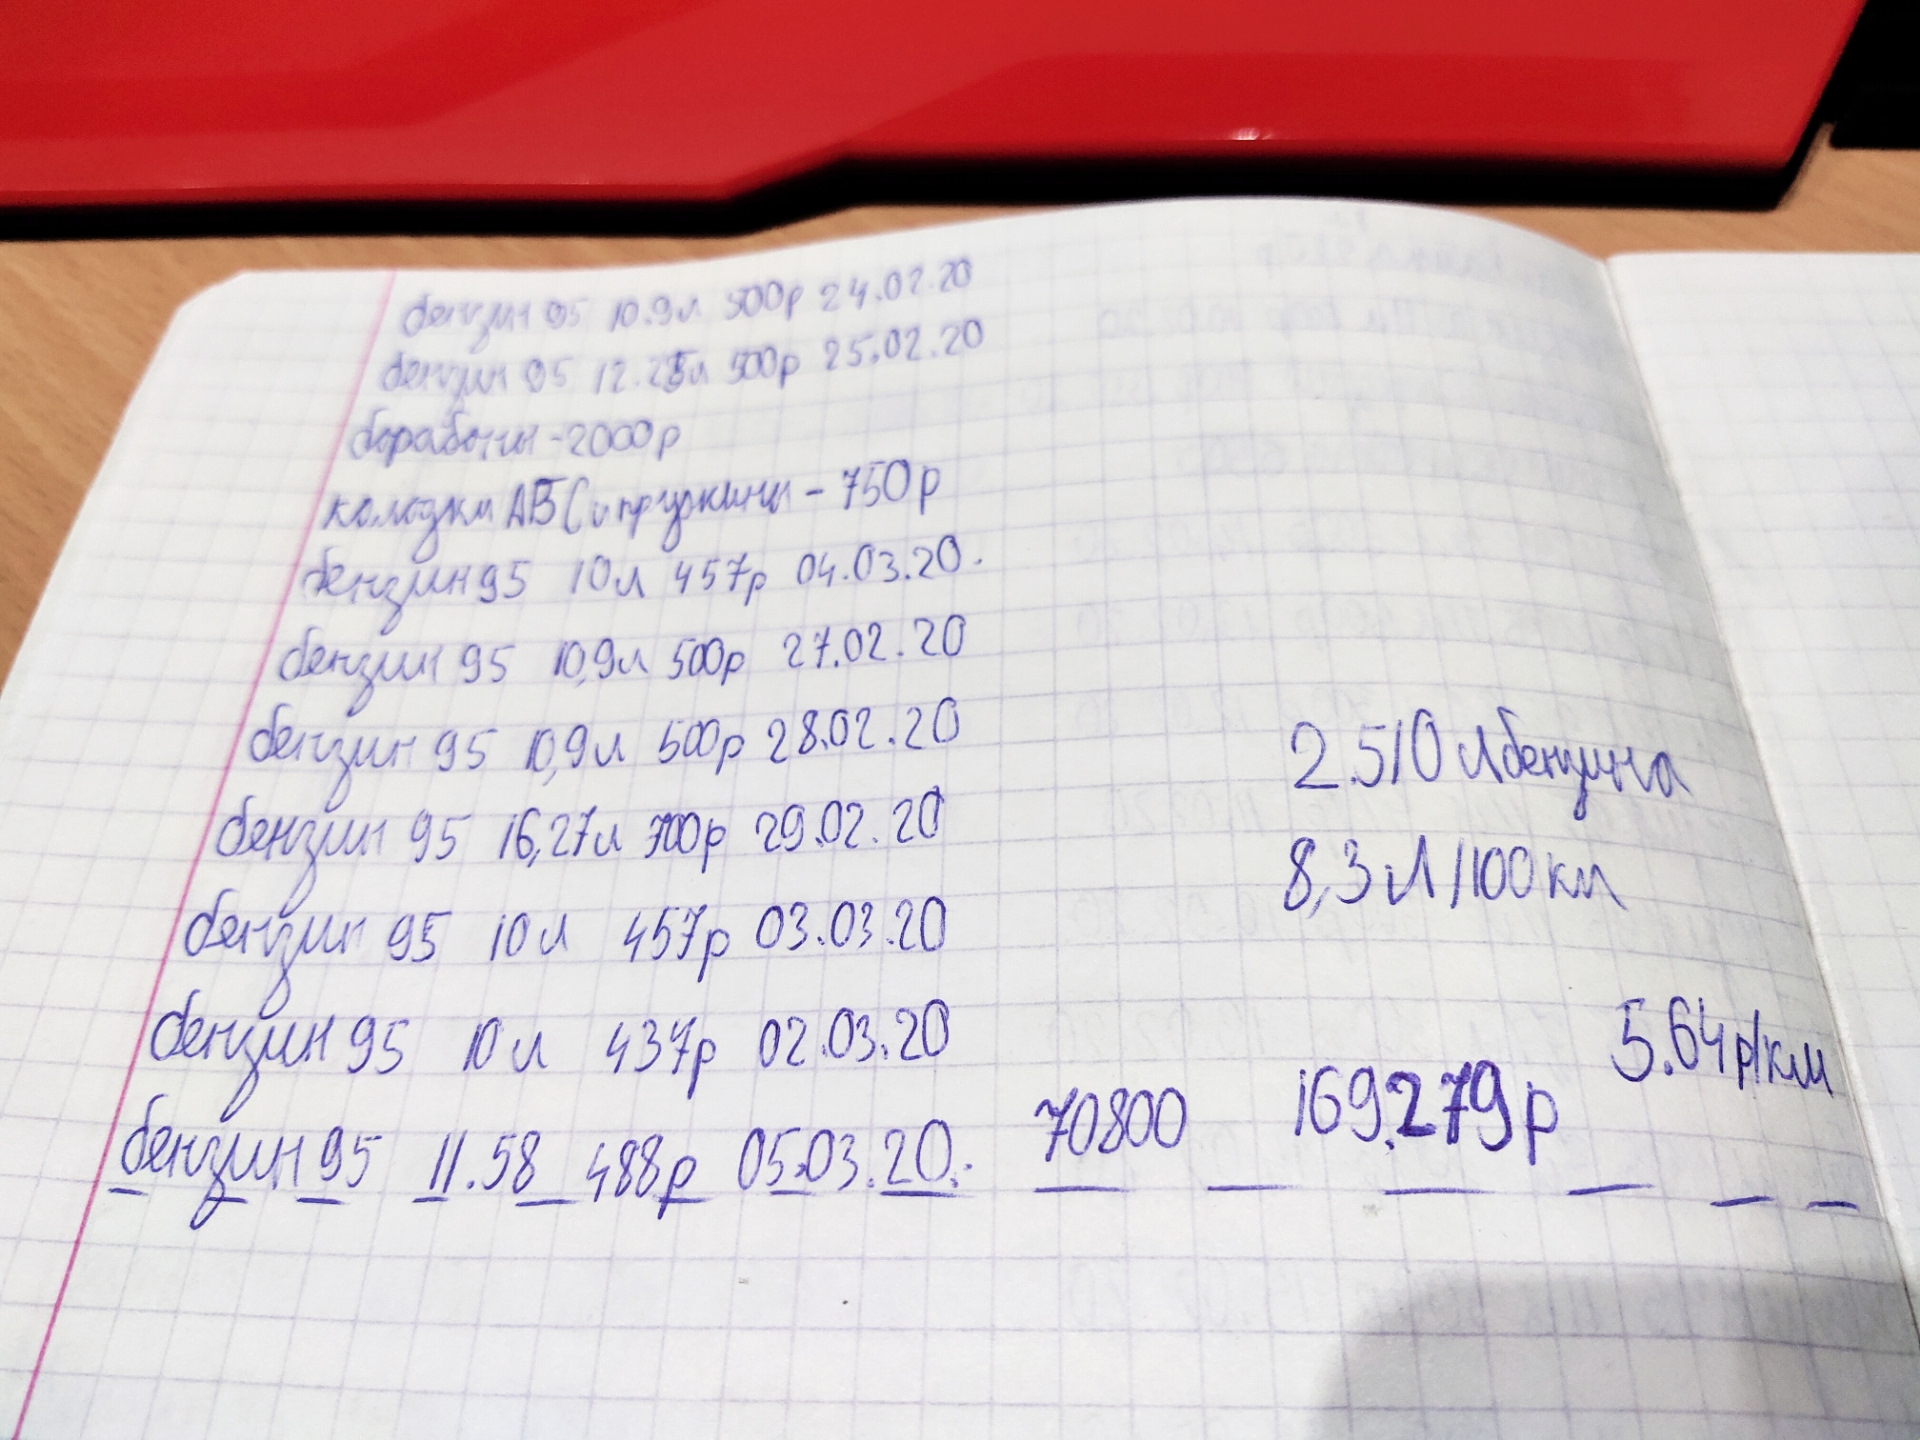 бензин 95 10.9л 500р 24.02.20
бензин 95 12.25л 500р 25.02.20
борабоны -2000р
колодки АБС и пружины - 750р
бензин 95 10л 457р 04.03.20.
бензин 95 10,9л 500р 27.02.20
бензин 95 10,9л 500р 28.02.20
2.510 л бензина
бензин 95 16,27л 700р 29.02.20
8,3 л/100км
бензин 95 10л 457р 03.03.20
бензин 95 10л 437р 02.03.20
5.64р/км
бензин 95 11.58 488р 05.03.20. 70800 169.279р